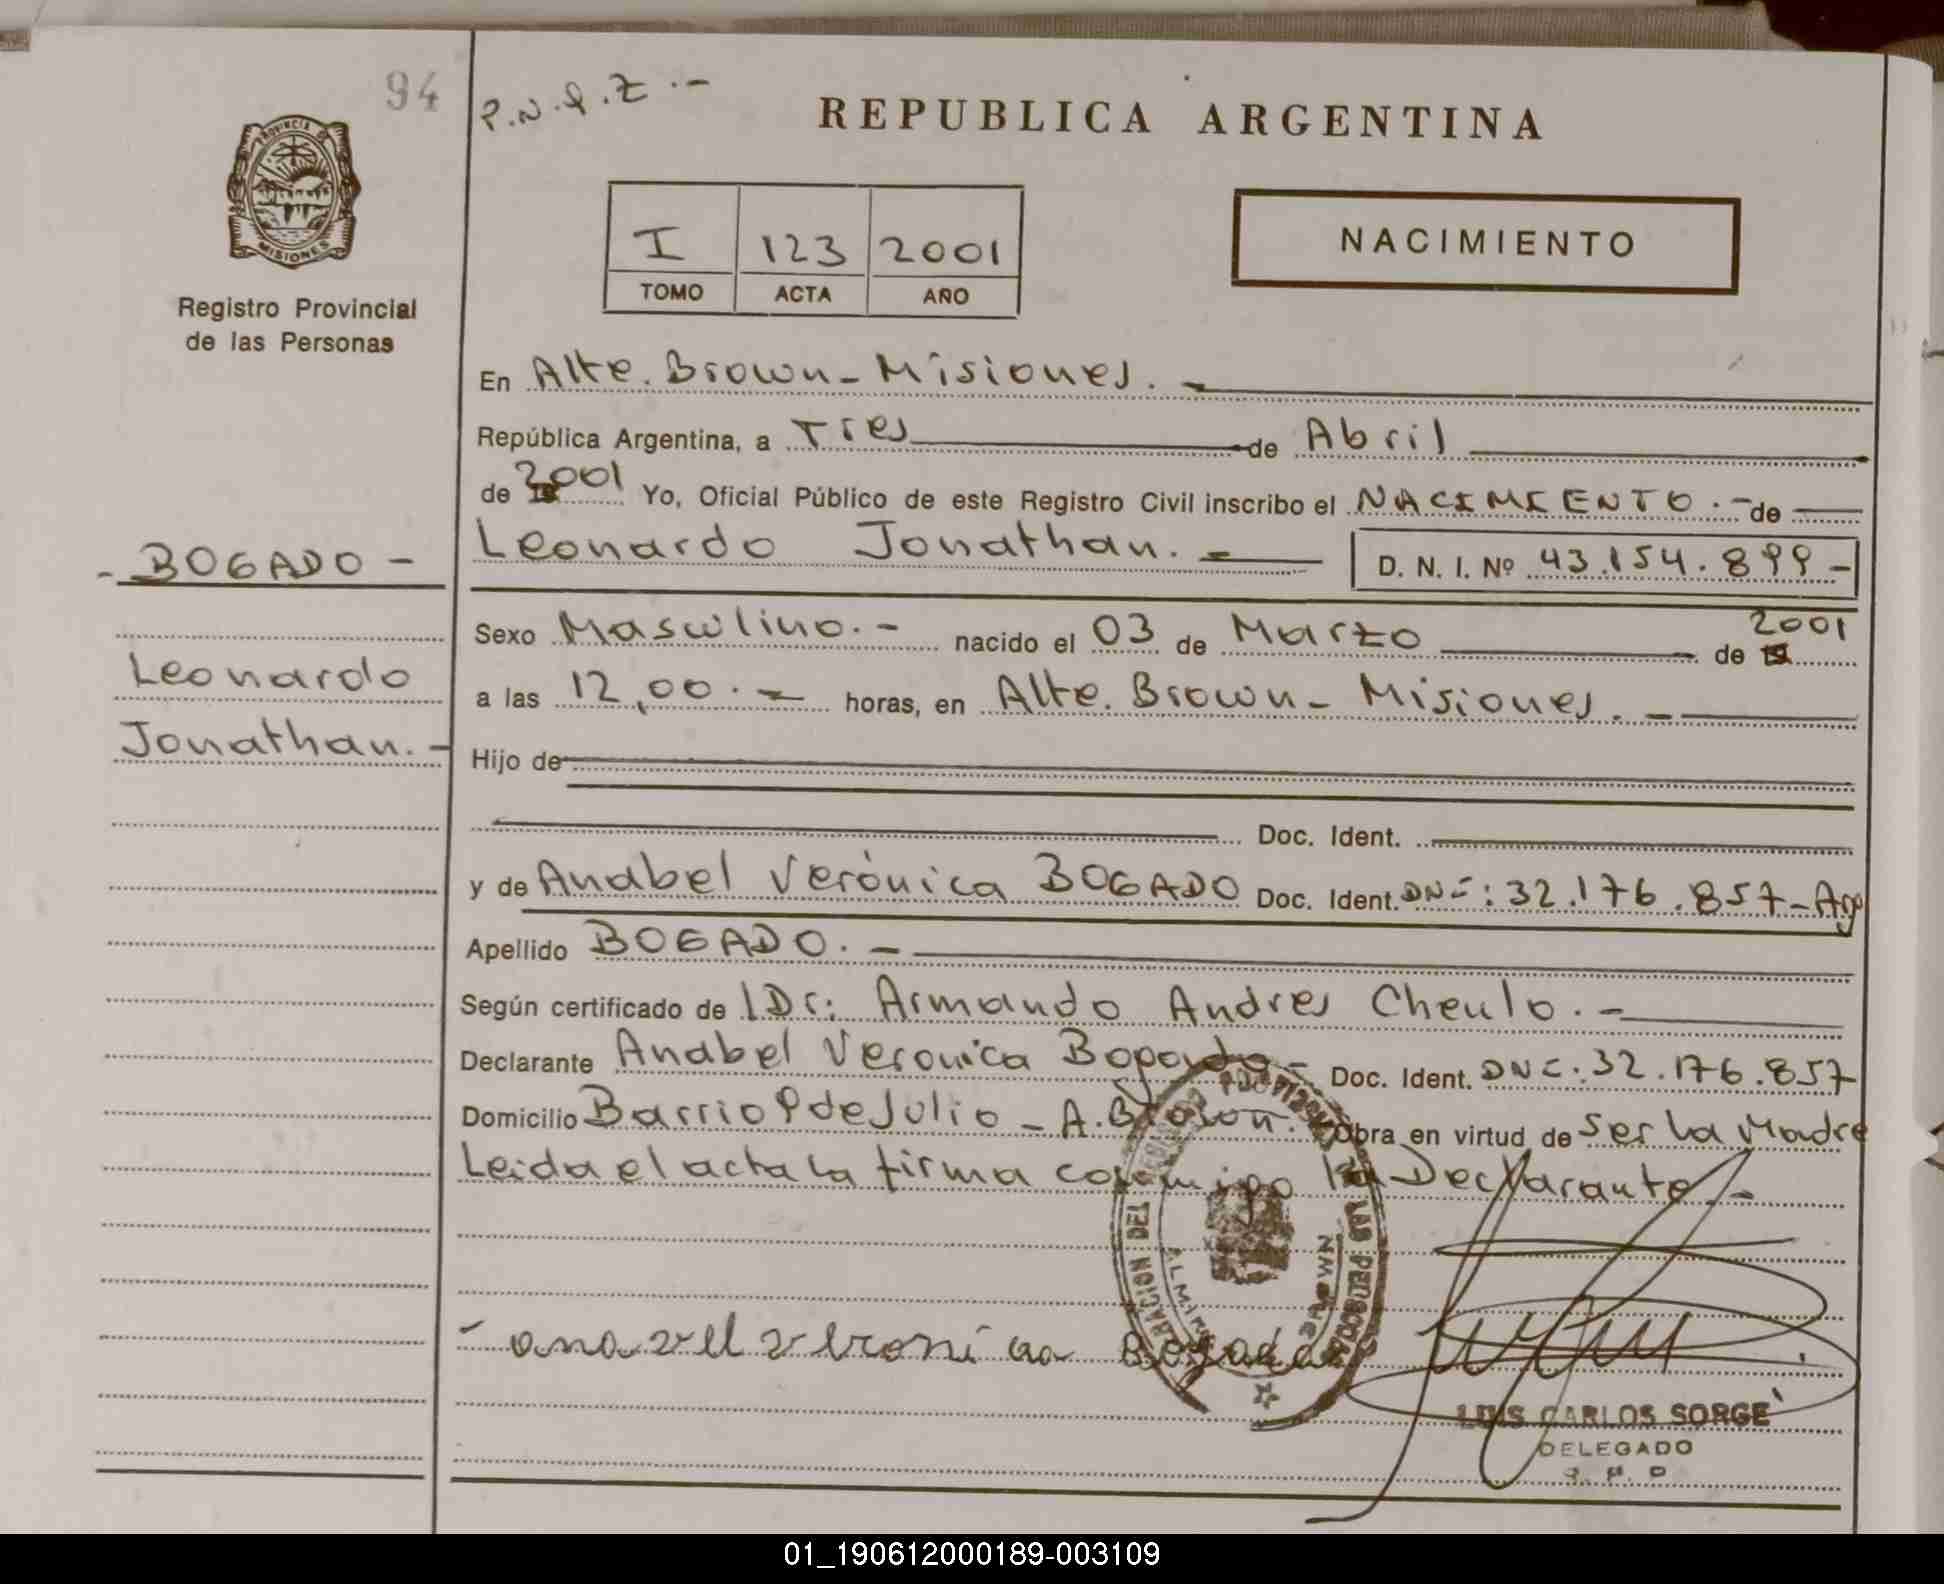 94
P.N.Q.Z.-
REPUBLICA ARGENTINA
PROVINCIA DE
MISIONES
Registro Provincial
de las Personas
I 123 2001
TOMO ACTA AÑO
NACIMIENTO
En Alte. Brown - Misiones. -
República Argentina, a Tres de Abril
de 2001 Yo, Oficial Público de este Registro Civil inscribo el NACIMIENTO.- de
- BOGADO -
Leonardo Jonathan. - D. N. I. Nº 43.154.899-
Sexo Masculino.- nacido el 03 de Marzo de 19 2001
Leonardo
a las 12,00.- horas, en Alte. Brown - Misiones. -
Jonathan. -
Hijo de
Doc. Ident.
y de Anabel Verónica BOGADO Doc. Ident. DNI: 32.176.857-Arg
Apellido BOGADO. -
Según certificado de l Dr: Armando Andres Cheulo. -
Declarante Anabel Veronica Bogado - Doc. Ident. DNI: 32.176.857
Domicilio Barrio 9 de Julio - A. Brown. Obra en virtud de ser la Madre
Leida el acta la firma conmigo la Declarante. -
- anavell veronica Bogado
LUIS CARLOS SORGE
DELEGADO
01_190612000189-003109